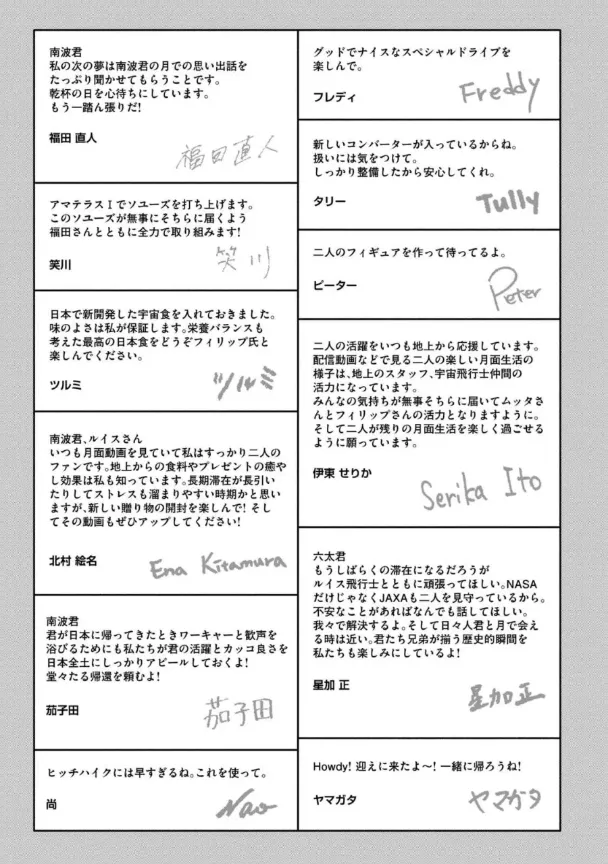 グッドでナイスなスペシャルドライブを
楽しんで。
フレディ
Freddy
新しいコンバーターが入っているからね。
扱いには気をつけて。
しっかり整備したから安心してくれ。
タリー
Tully
二人のフィギュアを作って待ってるよ。
ピーター
Peter
二人の活躍をいつも地上から応援しています。
配信動画などで見る二人の楽しい月面生活の
様子は、地上のスタッフ、宇宙飛行士仲間の
活力になっています。
みんなの気持ちが無事そちらに届いてムッタさ
んとフィリップさんの活力となりますように。
そして二人が残りの月面生活を楽しく過ごせる
ように願っています。
伊東 せりか
Serika Ito
六太君
もうしばらくの滞在になるだろうが
ルイス飛行士とともに頑張ってほしい。NASA
だけじゃなくJAXAも二人を見守っているから。
不安なことがあればなんでも話してほしい。
我々で解決するよ。そして日々人君と月で会え
る時は近い。君たち兄弟が揃う歴史的瞬間を
私たちも楽しみにしているよ!
星加 正
星加正
Howdy! 迎えに来たよ〜! 一緒に帰ろうね!
ヤマガタ
ヤマガタ
南波君
私の次の夢は南波君の月での思い出話を
たっぷり聞かせてもらうことです。
乾杯の日を心待ちにしています。
もう一踏ん張りだ!
福田 直人
福田直人
アマテラスⅠでソユーズを打ち上げます。
このソユーズが無事にそちらに届くよう
福田さんとともに全力で取り組みます!
笑川
笑川
日本で新開発した宇宙食を入れておきました。
味のよさは私が保証します。栄養バランスも
考えた最高の日本食をどうぞフィリップ氏と
楽しんでください。
ツルミ
ツルミ
南波君、ルイスさん
いつも月面動画を見ていて私はすっかり二人の
ファンです。地上からの食料やプレゼントの癒や
し効果は私も知っています。長期滞在が長引い
たりしてストレスも溜まりやすい時期かと思い
ますが、新しい贈り物の開封を楽しんで! そし
てその動画もぜひアップしてください!
北村 絵名
Ena Kitamura
南波君
君が日本に帰ってきたときワーキャーと歓声を
浴びるためにも私たちが君の活躍とカッコ良さを
日本全土にしっかりアピールしておくよ!
堂々たる帰還を頼むよ!
茄子田
茄子田
ヒッチハイクには早すぎるね。これを使って。
尚
Nao